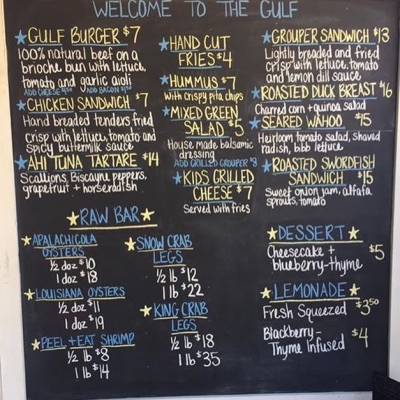 WELCOME TO THE GULF
GULF BURGER $7
100% natural beef on a
brioche bun with lettuce,
tomato and garlic aioli
ADD CHEESE $.50 ADD BACON $1.50
CHICKEN SANDWICH $7
Hand breaded tenders fried
crisp with lettuce, tomato and
spicy buttermilk sauce
AHI TUNA TARTARE $14
Scallions, Biscayne peppers,
grapefruit + horseradish
HAND CUT
FRIES $4
HUMMUS $7
With crispy pita chips
MIXED GREEN
SALAD $5
House made balsamic
dressing
ADD GRILLED GROUPER $8
KIDS GRILLED
CHEESE $7
Served with fries
GROUPER SANDWICH $13
Lightly breaded and fried
crisp with lettuce, tomato
and lemon dill sauce
ROASTED DUCK BREAST $16
Charred corn + quinoa salad
SEARED WAHOO $15
Heirloom tomato salad, shaved
radish, bibb lettuce
ROASTED SWORDFISH
SANDWICH $15
Sweet onion jam, alfalfa
sprouts, tomato
RAW BAR
APALACHICOLA
OYSTERS
½ doz $10
1 doz $18
LOUISIANA OYSTERS
½ doz $11
1 doz $19
PEEL + EAT SHRIMP
½ lb $8
1 lb $14
SNOW CRAB
LEGS
½ lb $12
1 lb $22
KING CRAB
LEGS
½ lb $18
1 lb $35
DESSERT
Cheesecake +
blueberry-thyme $5
LEMONADE
Fresh Squeezed $3.50
Blackberry-
Thyme Infused $4